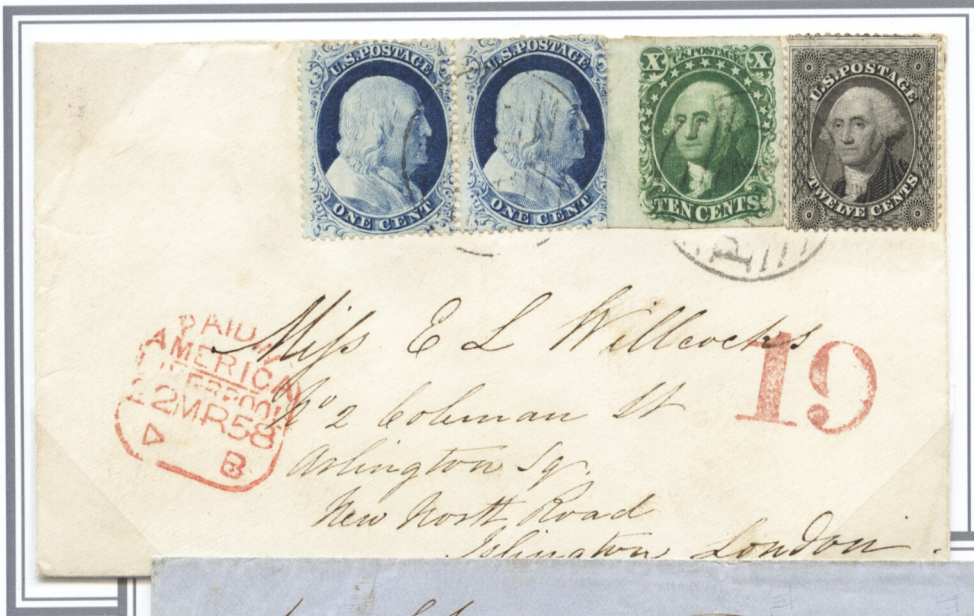 U.S. POSTAGE
ONE CENT
U.S. POSTAGE
ONE CENT
X U.S. POSTAGE X
TEN CENTS
U.S. POSTAGE
TWELVE CENTS
PAID
AMERICA
LIVERPOOL
22MR58
B
19
Miss E L Willcocks
No 2 Colman St
Arlington Sq.
New North Road
Islington London.